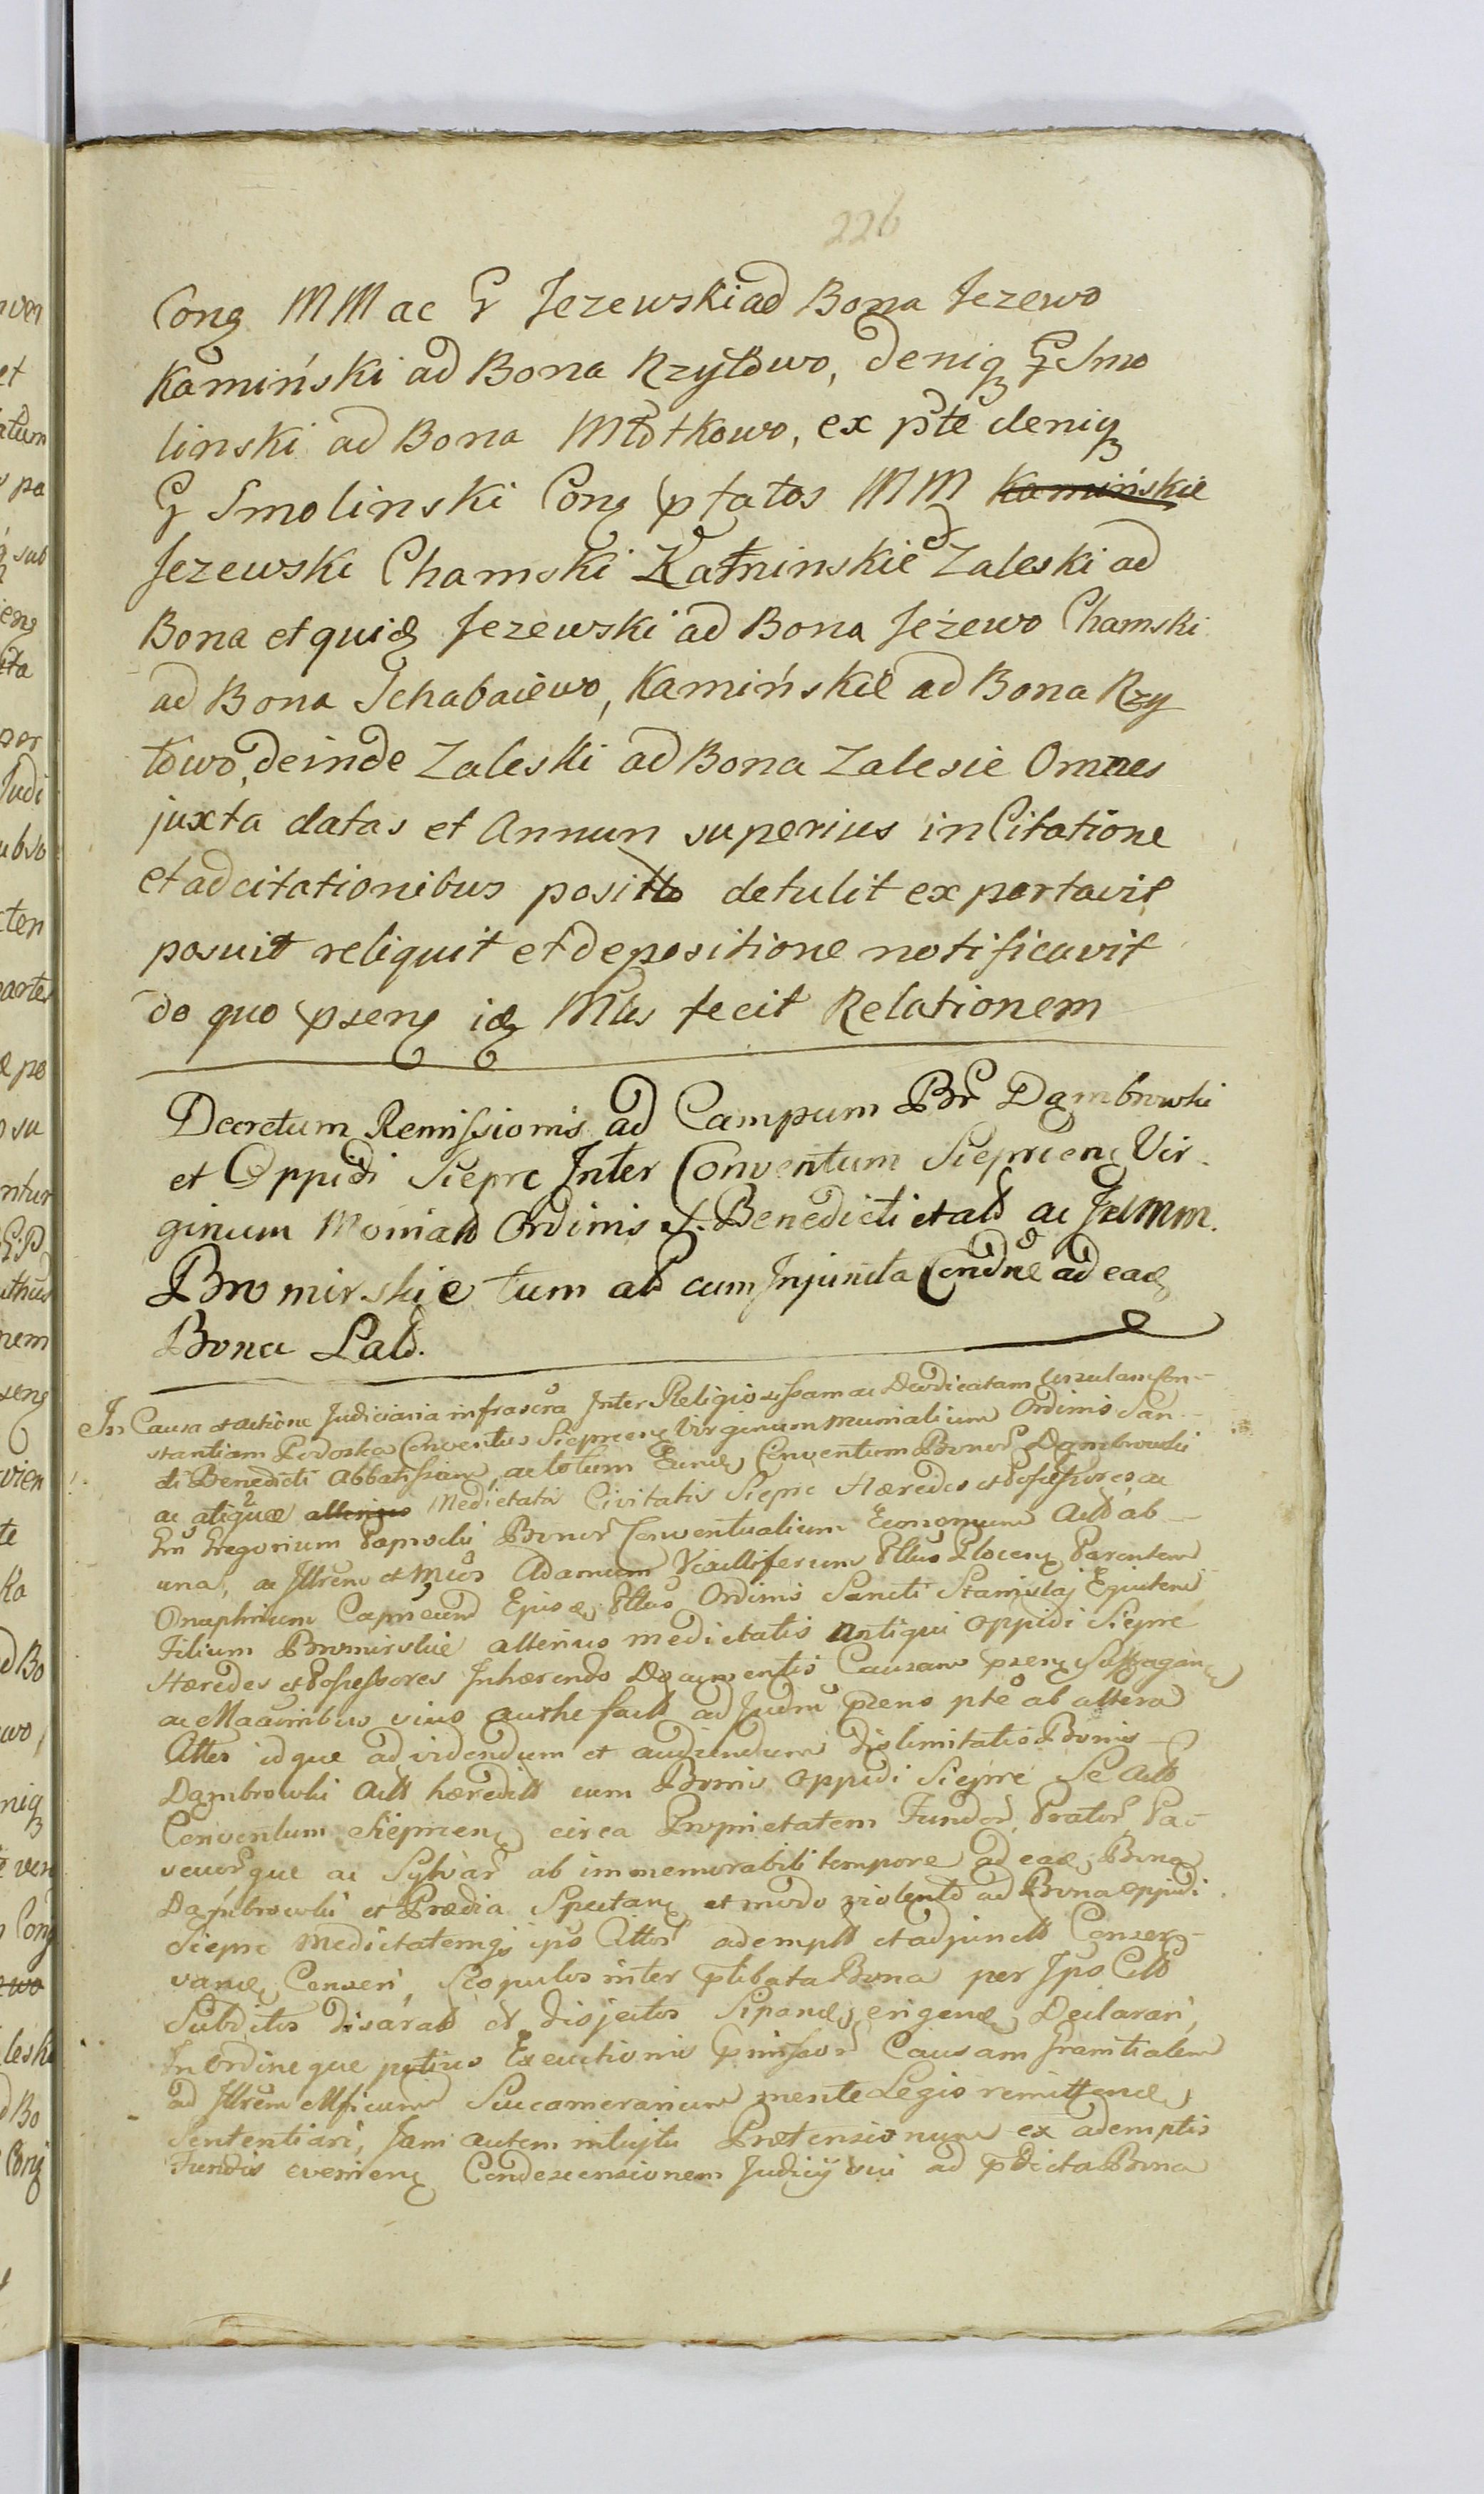 226
Cong MM ac G Jezewski ad Bona Jezewo
Kamiński ad Bona Rzytowo, deniq G Smo
linski ad Bona Młotkowo, ex pte deniq
G Smolinski Cong ptatos MM Kamińskie
Jezewski Chamski Kaminskie Zaleski ad
Bona et quid Jezewski ad Bona Jeżewo Chamski
ad Bona Schabaiewo, Kamińskie ad Bona Rzy
towo, deinde Zaleski ad Bona Zalesie Omnes
juxta datas et Annum superius in Citatione
et adcitationibus positto detulit exportavit
posuit reliquit et depositione notificavit
do quo pseng id Mtis fecit Relationem
Decretum Remissionis ad Campum Br Dąmbrowski
et Oppidi Sieprc Inter Conventum Sieprceng Vir
ginum Moniald Ordinis S. Benedicti et ald ac JJMM.
Bromirskie tum ald cum Injuncta Condne ad ead
Bona Lald.
In Causa et actione Judiciaria infrascra Inter Religiosissam ac Deodicatam Urzulam Con-
stantiam Podoska Conventus Siepreeng Virginum Munialium Ordinis San-
cti Benedicti Abbatissam, ac totum Eund Conventum Bonor Dąmbrowski
ac Medietatis Civitatis Sieprc Hæredes et Possessores, ac
Gregorium Paprocki Bonor Conventualium Economum Actt ab
una, ac Illrem et Adamum Vexilliferum Pttus Ploceng Parentem
Onuphrium Capneum Ejusd Pttus Ordinis Sancti Stanislaj Equitem
Filium Bromirskie alterius medietatis Antiqui Oppidi Sieprc
Hæredes et Possessores Inhærendo Documentis Causam pseng
ac Maximibus vim ad Judm psens pte ab altera
Cittos idque ad videndum et audiendum dislimitatis Bonis
Dąmbrowki Actt hæreditt cum Bonis Oppidi Sieprc Se Actt
Conventum Siepreeng circa Proprietatem Fundor, Prator, Pa-
scuorque ac Sylvar ab immemorabili tempore ad ead Bona
Dąmbrowki et Prædia Spectang et modo violento ad Bona oppidi
Sieprc Medietatemq ips Cittor adempttt et adjunctt Conser-
vand Censeri, Scopulos inter ptibata Bona per Ips Citt
Subditos disarald et disjectos Sipand, erigend, Declarari,
In ordineque potius Executionis pmissor Causam Granitialem
ad Illrem Mficum Succamerarium mente Legis remittend
Sententiari, Jam autem intuitu Prætensionum ex ademptis
Fundis evenieng Condescensionem Judicij sui ad pdicta Bona